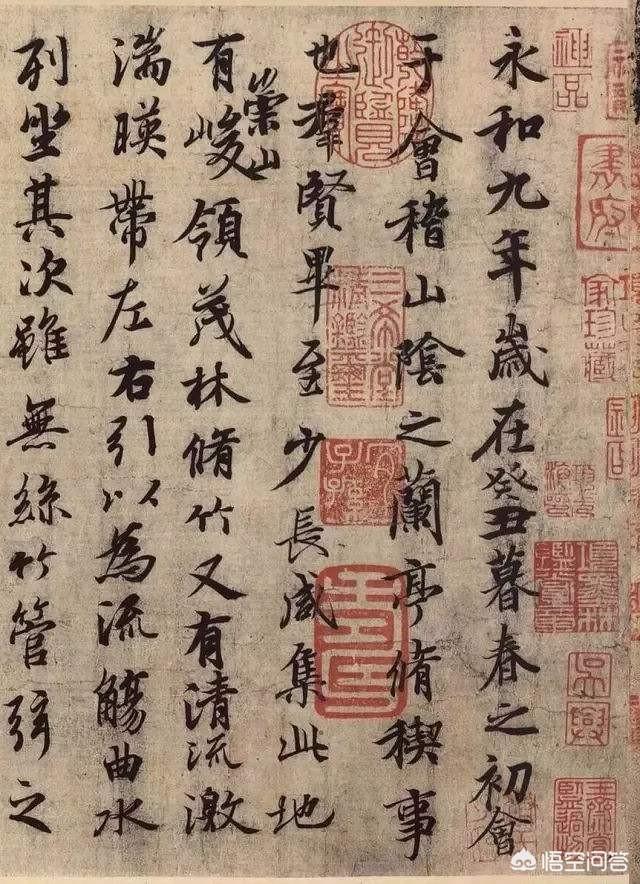 神品
家珍藏
吳興
永和九年歲在癸丑暮春之初會
于會稽山陰之蘭亭脩稧事
也羣賢畢至少長咸集此地
三希堂精鑑璽
宜子孫
有崇山峻領茂林脩竹又有清流激
湍暎帶左右引以為流觴曲水
列坐其次雖無絲竹管弦之
悟空问答